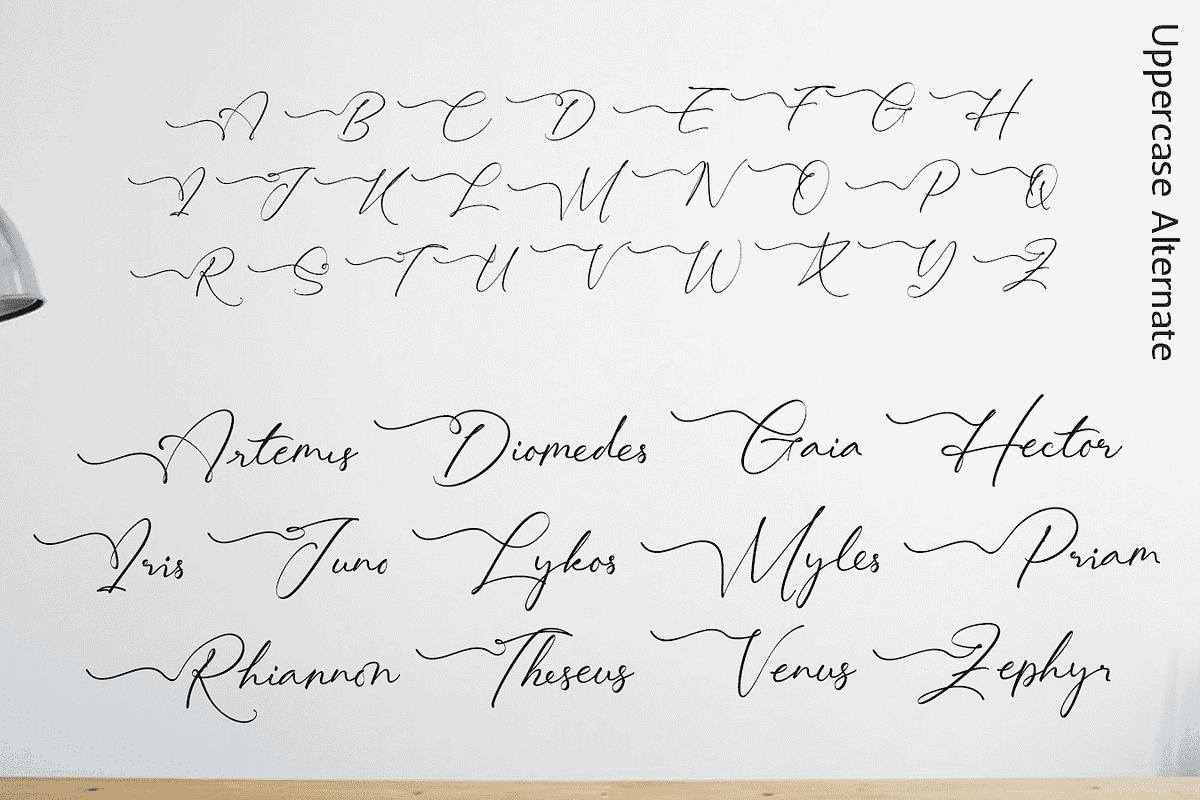 A B C D E F G H
I J K L M N O P Q
R S T U V W X Y Z
Uppercase Alternate
Artemis Diomedes Gaia Hector
Iris Juno Lykos Myles Priam
Rhiannon Theseus Venus Zephyr